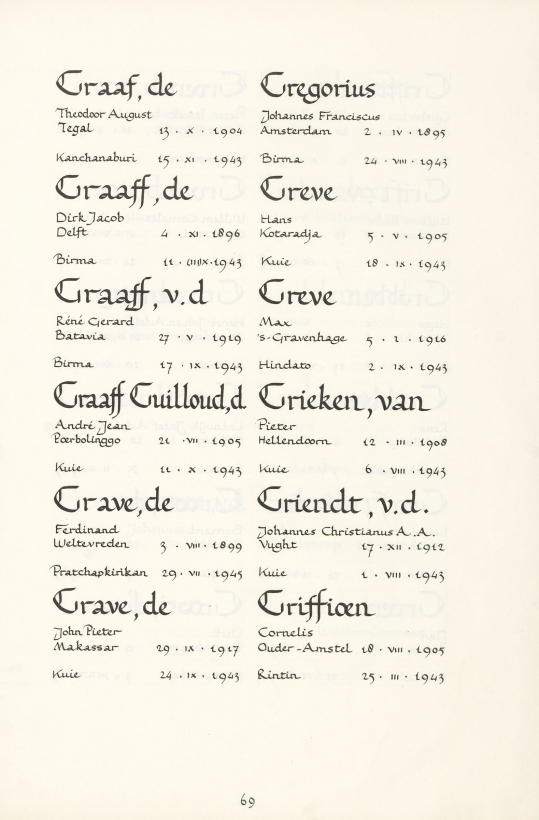 Graaf, de
Theodoor August
Tegal 13 · X · 1904
Kanchanaburi 15 · XI · 1943
Graaff, de
Dirk Jacob
Delft 4 · XI · 1896
Birma 11 · IX · 1943
Graaff, v.d
Réné Gerard
Batavia 27 · V · 1919
Birma 17 · IX · 1943
Graaff Guilloud,d.
André Jean
Poerbolinggo 21 · VII · 1905
Kuie 11 · X · 1943
Grave, de
Ferdinand
Weltevreden 3 · VIII · 1899
Pratchapkirikan 29 · VII · 1945
Grave, de
John Pieter
Makassar 29 · IX · 1917
Kuie 24 · IX · 1943
Gregorius
Johannes Franciscus
Amsterdam 2 · IV · 1895
Birma 24 · VIII · 1943
Greve
Hans
Kotaradja 5 · V · 1905
Kuie 18 · IX · 1943
Greve
Max
's-Gravenhage 5 · 1 · 1916
Hindato 2 · IX · 1943
Grieken, van
Pieter
Hellendoorn 12 · III · 1908
Kuie 6 · VIII · 1943
Griendt, v.d.
Johannes Christianus A.A.
Vught 17 · XII · 1912
Kuie 1 · VIII · 1943
Griffioen
Cornelis
Ouder-Amstel 18 · VIII · 1905
Rintin 25 · III · 1943
69